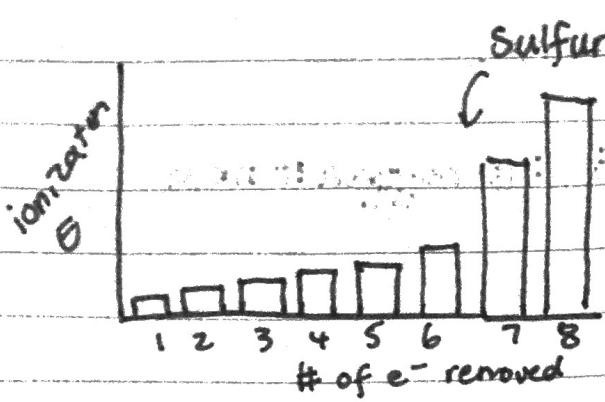 Sulfur
ionization
E
1 2 3 4 5 6 7 8
# of e⁻ removed